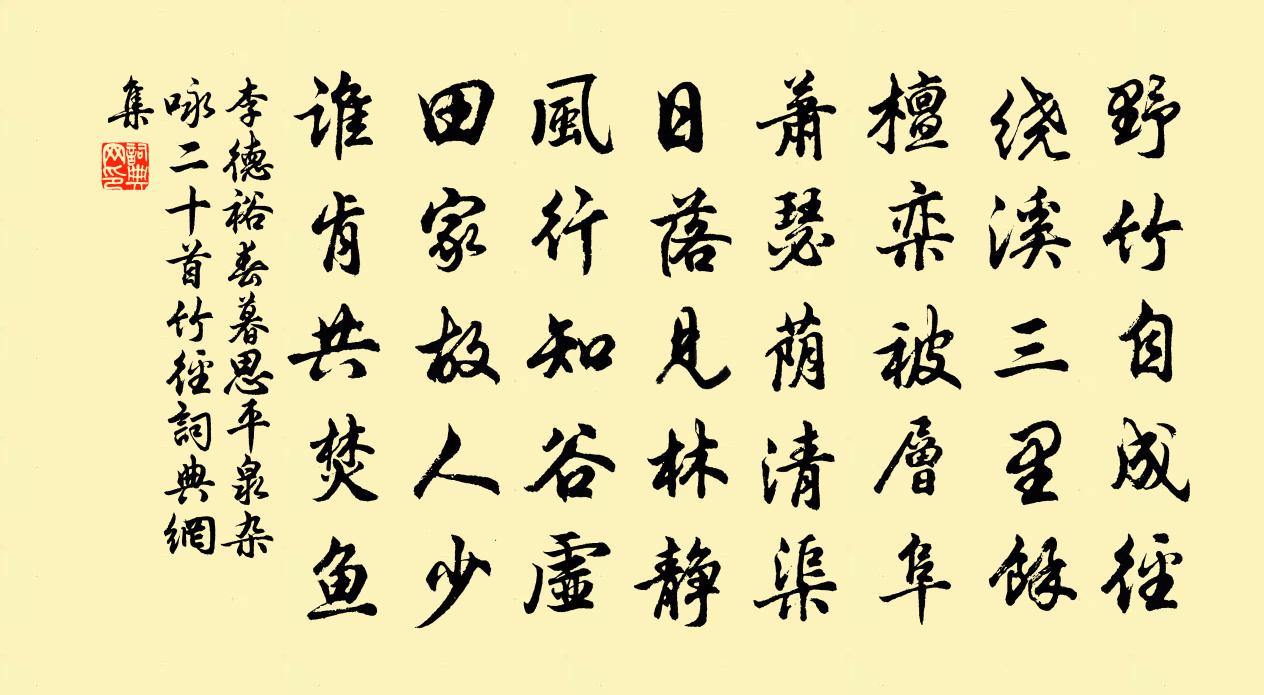 野竹自成徑
绕溪三里餘
檀栾被層阜
蕭瑟荫清渠
日落見林静
風行知谷虛
田家故人少
谁肯共焚鱼
李德裕春暮思平泉杂
咏二十首竹徑詞典網
集
詞典网印